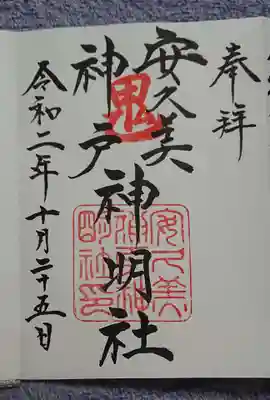 奉拝
安久美
神戸神明社
鬼
安久美神戸神明社印
令和二年十月二十五日